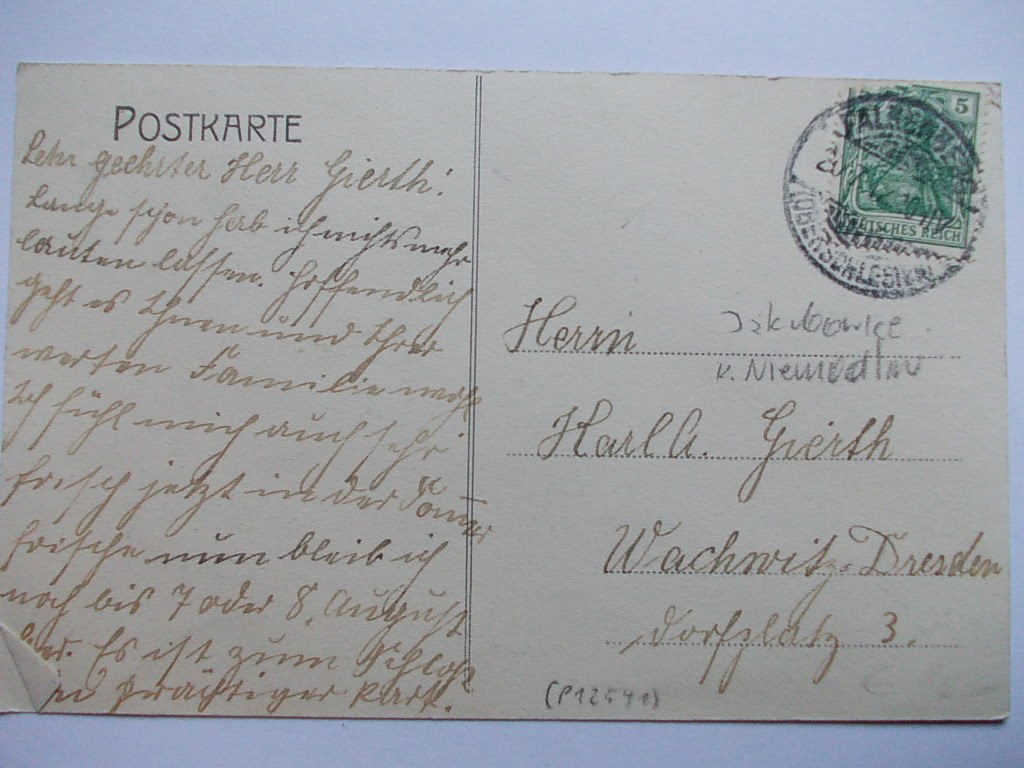 POSTKARTE
Sehr geehrter Herr Gierth!
Lange schon hab ich nichts mehr
lauten lassen. Hoffendlich
geht es Ihnen und Ihrer
werten Familie wohl
Ich fühl mich auch sehr
frisch jetzt in der Som̄er
frische nun bleib ich
noch bis 7 oder 8. August
hier. Es ist zum Schloß
ein prächtiger Park.
5
FALKENBERG
OBERSCHLESIEN
DEUTSCHES REICH
Herrn
Jakubowice
k. Niemodlin
Karl A. Gierth
Wachwitz-Dresden
Dorfplatz 3.
(P12541)